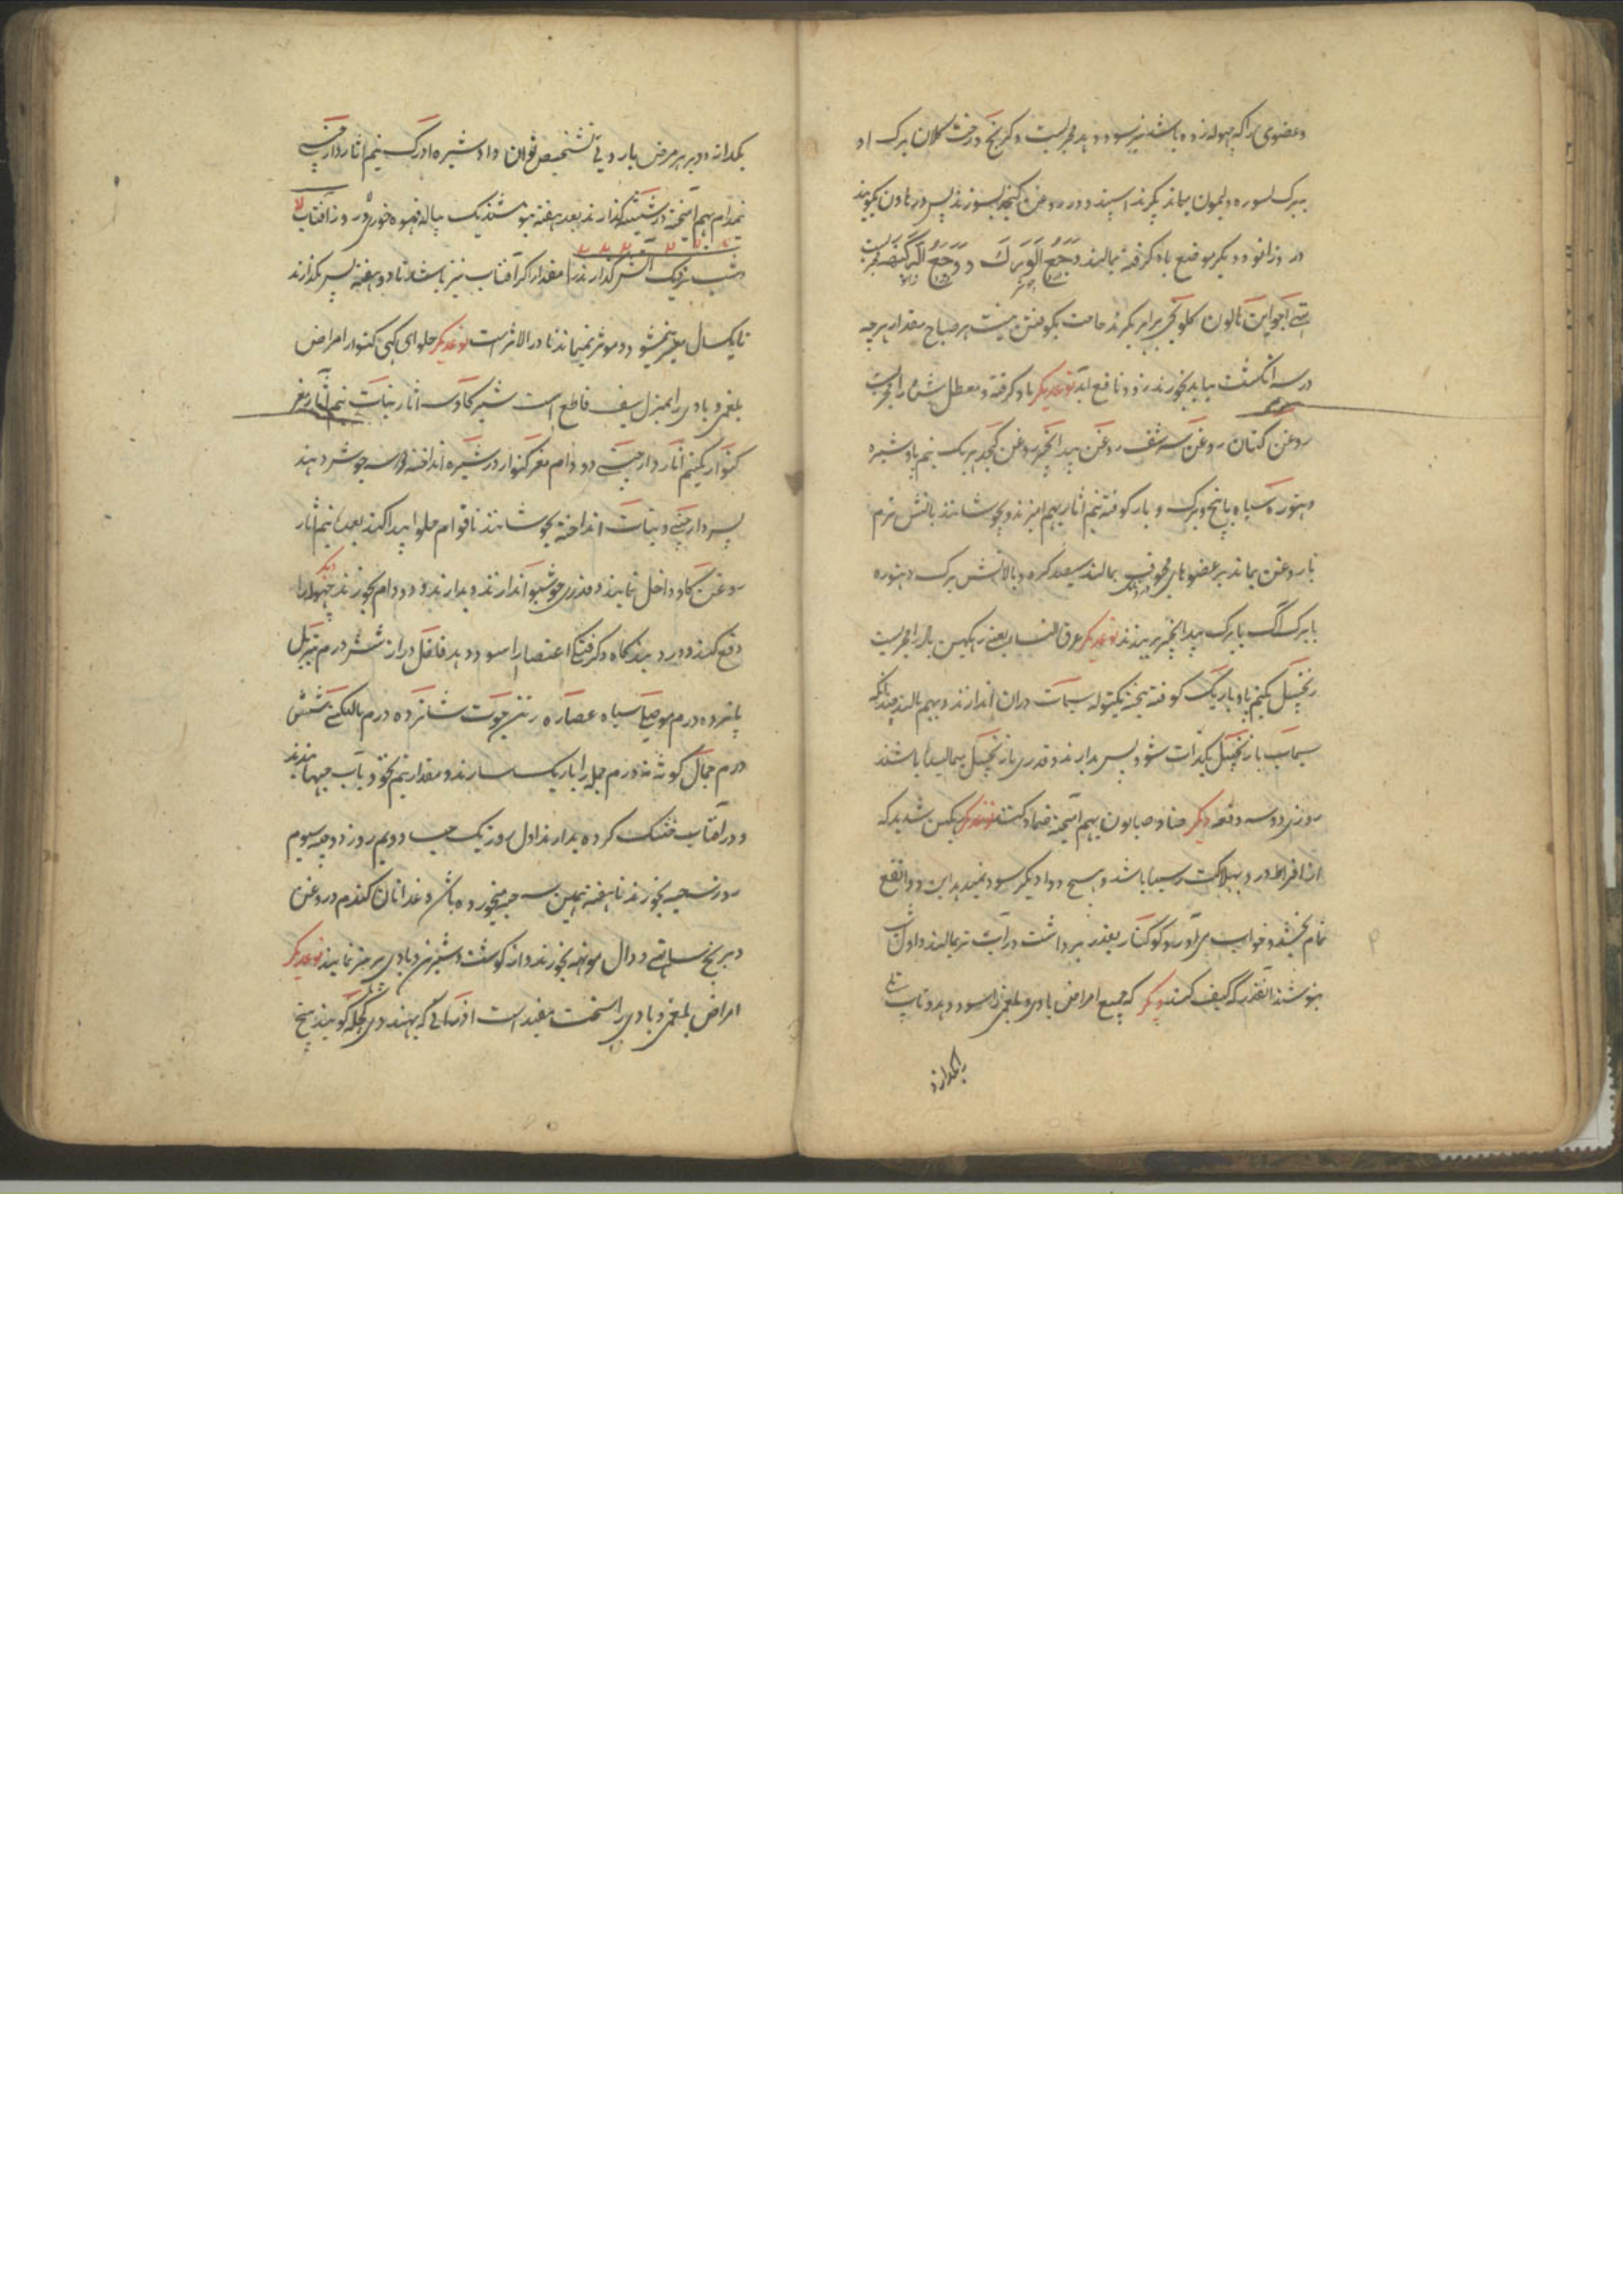 وعضوی را که جهوله زده باشد نیز سود دهد مجربست دیگر بیخ درخت کلان برک او
ببرک لسوره ولیمون بماند بگیرند اسپند و در روغن کنجد بسوزند پس در هاون بکوبند
در وزانو و دیگر موضع باد گرفته بمالند وَجَعُ الوَرِک و وَجَعُ الرُّکبَه مجربست
میتهی اجواین هالون کلونجی برابر بگیرند حاجت بکوفتن نیست هر صباح مقدار هرچه
در سه انگشت بیاید بخورند زود نافع آید نوعدیگر باد گرفته و معطل شده را مجربست
روغن کتان روغن سرشف روغن بیدانجیر روغن کنجد هریک نیم پاو شیره
دهتوره سیاه با بیخ و برک و بار کوفته نیم آثار بهم آمیزند و بجوشانند بآتش نرم
تا روغن بماند بر عضوهای مأوف بمالند سعد کرده و بالایش برک دهتوره
یا برک آک یا برک بیدانجیر بربندند نوعدیگر عرق النسا یعنی رینکهن باد را مجربست
زنجبیل یکنیم پاو باریک کوفته بیخته یکتوله سیماب دران اندازند و بهم بمالند چندانکه
سیماب با زنجبیل یکذات شود پس بدارند و قدری از زنجبیل میمالیده باشند
روزی دوسه دفعه دیگر حنا و صابون بهم آمیخته ضماد کنند نوعدیگر رینکهن شدید که
از افراط درد بهلاکت رسیده باشد و هیچ دوا دیگر سود ندهد این دوا نفع
تمام بخشد و خواب می آورد کوکنار بقدر برداشت در آب تر بمالند و اول شب
بنوشند آنقدر که کیف کند دیگر که جمیع امراض بادی و بلغمی را سود دهد و تاب
را بکدارد
یکدانه دو بر هر مرض بارد بی تشخیص توان داد شیره ادرک نیم آثار دارچینی
نیمدام بهم آمیخته در شیشه گذارند بعد هفته بنوشند یک پیاله قهوه خوری در روز آفتاب
و شب نزدیک آتش گذارند را مقدار اگر آفتاب تیز باشد تا دو هفته پس بگذارند
تا یکسال متغیر نمیشود و موثر نمیماند نادر الاثر است نوعدیگر حلوای کهی کنوار امراض
بلغمی و بادی را بمنزل سیف قاطع است شیر گاو سه آثار نبات نیم آثار مغز
کنوار یکنیم آثار دارچینی دو دام مغز کنوار در شیره انداخته دوسه جوش دهند
پس دارچینی و نبات انداخته بجوشانند تا قوام حلوا پیدا کند بعده نیم آثار
روغن گاو داخل نمایند و قدری خوشبو اندازند و بدارند و دو دام بخورند دیگر جهوله را
دفع کند و درد بندگاه و گرفتگی اعضا را سود دهد فلفل دراز شش درم تربل
پانزده درم موصلی سیاه عصاره رتن جوت شانزده درم مالکنگنی شش
درم جمال گوته نه درم جمله را باریک سازند و مقدار نیم نخود بآب حبها بندند
و در آفتاب خشک کرده بدارند اول روز یک حب دویم روز دو حب سیوم
روز سه حب بخورند تا هفته همین سه حب میخورده باشد و غذا نان گندم و روغن
و برنج ساتهی و دال مونهه بخورند و از گوشت و شیرین و بادی پرهیز نمایند نوعدیگر
امراض بلغمی و بادی را سخت مفید است اذراقی که بهندوی کچله گویند پنج